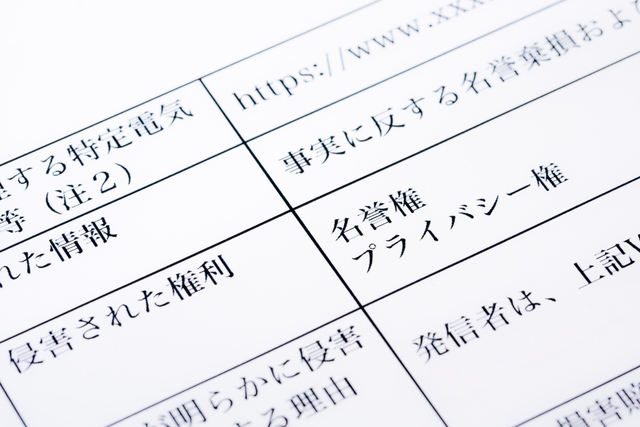 https://www.xxxx
する特定電気
等（注２）
事実に反する名誉棄損およ
れた情報
侵害された権利
名誉権
プライバシー権
が明らかに侵害
する理由
発信者は、上記W
損害賠